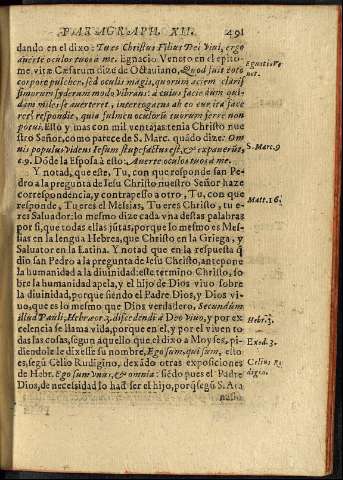 PARAGRAPH. XII. 491
dando en el dixo: Tu es Christus Filius Dei vivi, ergo
averte oculos tuos à me. Egnacio Veneto en el epito-
Egnatio Ve
net.
me. vitæ Cæsarum dize de Octauiano, Quod fuit toto
corpore pulcher, sed oculis magis, quorum aciem clarif
simorum syderum modo vibrans: à cuius facie dum qui-
dam miles se averteret, interrogatus ab eo cur ita face
ret? respondit, quia fulmen oculorum tuorum ferre non
potui. Esto y mas con mil ventajas tenia Christo nue
stro Señor, como parece de S. Marc. quãdo dize: Om
S. Marc. 9
nis populus videns Iesum stupefactus est, & expaverũt,
c. 9. Dõde la Esposa à esto: Averte oculos tuos à me.
Y notad, que este, Tu, con que responde san Pe-
dro a la pregunta de Iesu Christo nuestro Señor haze
correspondẽcia, y contrapesso a otro, Tu, con que
Matt. 16.
responde, Tu eres el Messias, Tu eres Christo, tu e
res Saluador: lo mesmo dize cada vna destas palabras
por si, que todas ellas jũtas, porque lo mesmo es Mes-
sias en la lengua Hebrea, que Christo en la Griega, y
Saluator en la Latina. Y notad que en la respuesta q̃
dio san Pedro a la pregunta de Iesu Christo, antepone
la humanidad a la diuinidad: este termino Christo, so-
bre la humanidad apela, y el hijo de Dios vivo sobre
la diuinidad, porque siẽdo el Padre Dios, y Dios vi-
uo, que es lo mesmo que Dios verdadero, Secundũm
illud Pauli, Hebræor. 3. discedendi à Deo vivo, y por ex
Hebr. 3.
celencia se llama vida, porque en el, y por el viuen to
das las cosas, segun aquello que el dixo a Moyses, pi-
Exod. 3.
diendole le dixesse su nombre, Ego sum, qui sum, esto
es, segũ Celio Rudigino, dexãdo otras exposiciones
Celius Ri
digin.
de Hebr. Ego sum vnus, & omnia: siẽdo pues el Padre
Dios, de necessidad lo ha de ser el hijo, porq̃ segũ S. Ata
nasio